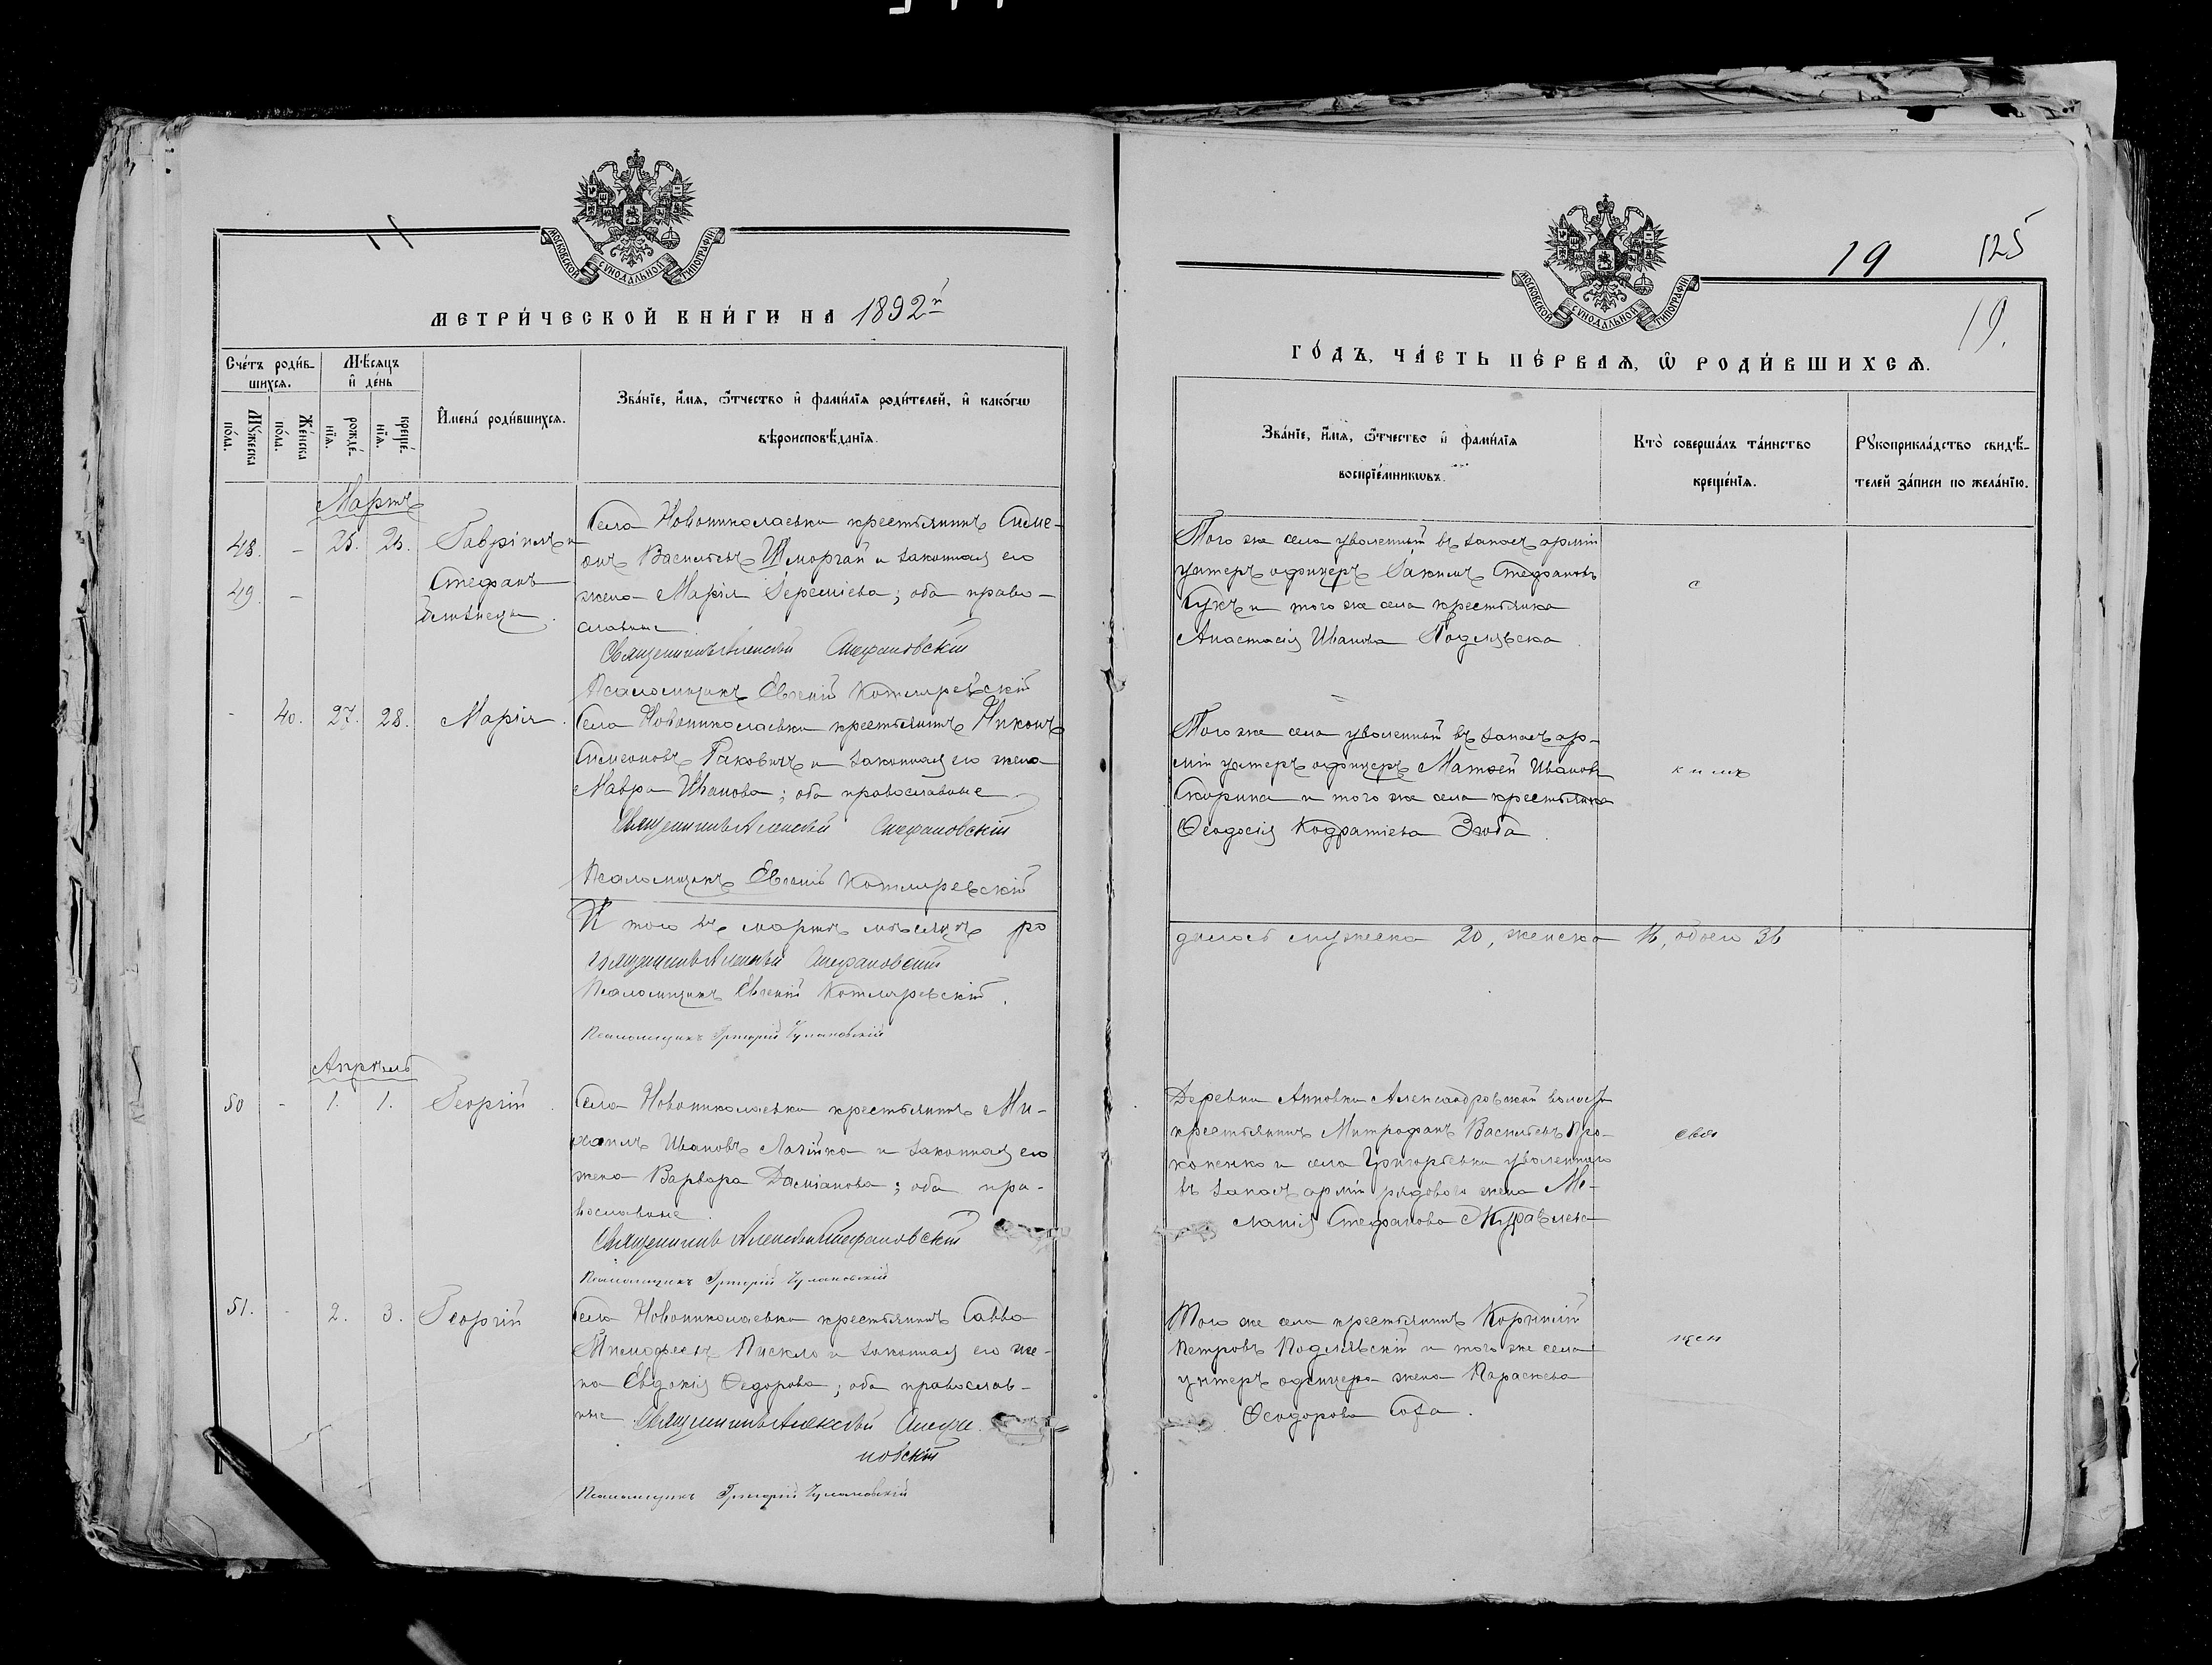 МОСКОВСКОЙ СѴНОДАЛЬНОЙ ТИПОГРАФІИ
МЕТРИ́ЧЕСКОЙ КНИ́ГИ НА 1892й
Сче́тъ роди́в-
шихся.
Мѣ́сяцъ
и҆ де́нь
Мꙋ́жеска
по́ла.
Же́нска
по́ла.
рожде́
нїѧ.
креще́
нїѧ.
И҆мена̀ роди́вшихся.
Зва́нїе, и҆́мѧ, ѻ҆́тчество и҆ фами́лїѧ роди́телей, и҆ како́гѡ
вѣроисповѣ́данїѧ.
Мартъ
48. - 25. 25. Гавріилъ и
49. - Стефанъ
близнецы.
Села Новониколаевки крестьянинъ Симе-
онъ Васильевъ Шморгай и законная его
жена Марія Іереміева; оба право-
славные
Священникъ Алексѣй Стефановскій
Псаломщикъ Евгеній Котляревскій
- 40. 27. 28. Марія.
Села Новониколаевки крестьянинъ Никонъ
Симеоновъ Раковичъ и законная его жена
Мавра Иванова; оба православные
Священникъ Алексѣй Стефановскій
Псаломщикъ Евгеній Котляревскій
И того въ мартѣ мѣсяцѣ ро
Священникъ Алексѣй Стефановскій
Псаломщикъ Евгеній Котляревскій.
Псаломщикъ Григорій
Апрѣль
50 - 1. 1. Георгій.
Села Новониколаевки крестьянинъ Ми-
хаилъ Ивановъ и законная его
жена Варвара Даміанова; оба пра-
вославные.
Священникъ Алексѣй Стефановскій
Псаломщикъ Григорій
51. - 2. 3. Георгій
Села Новониколаевки крестьянинъ Савва
Пискло и законная его же-
на Евдокія Федорова; оба православ-
ные. Священникъ Алексѣй Стефа
новскій
Псаломщикъ Григорій
19 125
19.
МОСКОВСКОЙ СѴНОДАЛЬНОЙ ТИПОГРАФІИ
ГО́ДЪ, ЧА́СТЬ ПЕ́РВАѦ, Ѡ҆ РОДИ́ВШИХСѦ.
Зва́нїе, и҆́мѧ, ѻ҆́тчество и҆ фами́лїѧ
воспрїе́мникѡвъ.
Кто̀ соверша́лъ та́инство
креще́нїѧ.
Рꙋкоприкла́дство свидѣ́-
телей за́писи по жела́нїю.
Того же села уволенный въ запасъ арміи
унтеръ офицеръ Іакимъ Стефановъ
Сукъ и того же села крестьянка
Анастасія Иванова Подлѣвска
с
Того же села уволенный въ запасъ ар-
міи унтеръ офицеръ Матѳей Ивановъ
Скорина и того же села крестьянка
Ѳеодосія Кодратіева Зюба.
дилось мужеска 20, женска 16, обоего 36
Деревни Анновки Александровской волости
крестьянинъ Митрофанъ Васильевъ Про-
копенко и села Григорьевки уволеннаго
въ запасъ арміи рядового жена Ме-
ланія Стефанова Журавлева
Свя
Того же села крестьянинъ Корнилій
Петровъ Подлѣвскій и того же села
унтеръ офицера жена Параскева
Ѳеодорова
щен